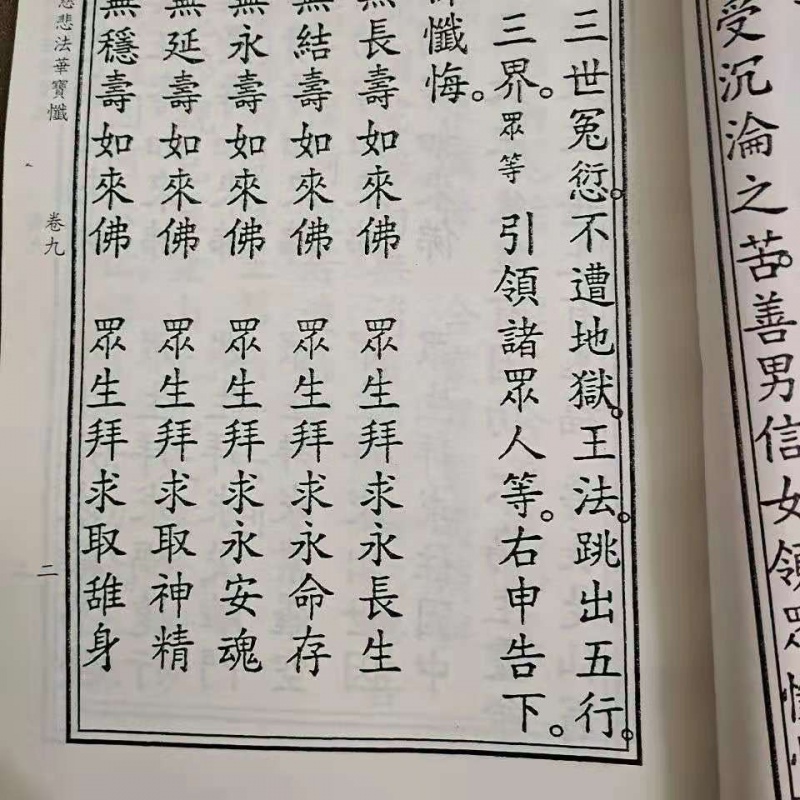 受沉淪之苦。善男信女領眾
三世冤愆。不遭地獄。王法。跳出五行。
三界。眾等 引領諸眾人等。右申告下。
懺悔。
無長壽如來佛 眾生拜求永長生
無結壽如來佛 眾生拜求永命存
無永壽如來佛 眾生拜求永安魂
無延壽如來佛 眾生拜求取神精
無穩壽如來佛 眾生拜求取身
悲法華寶懺 卷九 二